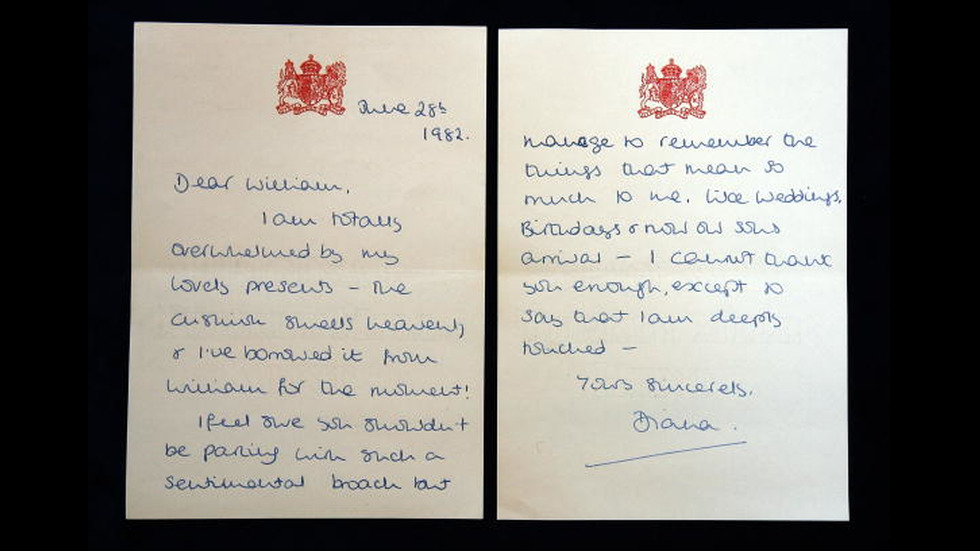 June 28th
1982.
Dear William,
I am totally
overwhelmed by my
lovely presents - the
cushion smells heavenly
& I've borrowed it from
William for the moment!
I feel sure you shouldn't
be parting with such a
sentimental broach but
manage to remember the
things that mean so
much to me, like Weddings,
Birthdays & now our sons
arrival - I cannot thank
you enough, except to
say that I am deeply
touched -
Yours sincerely,
Diana.